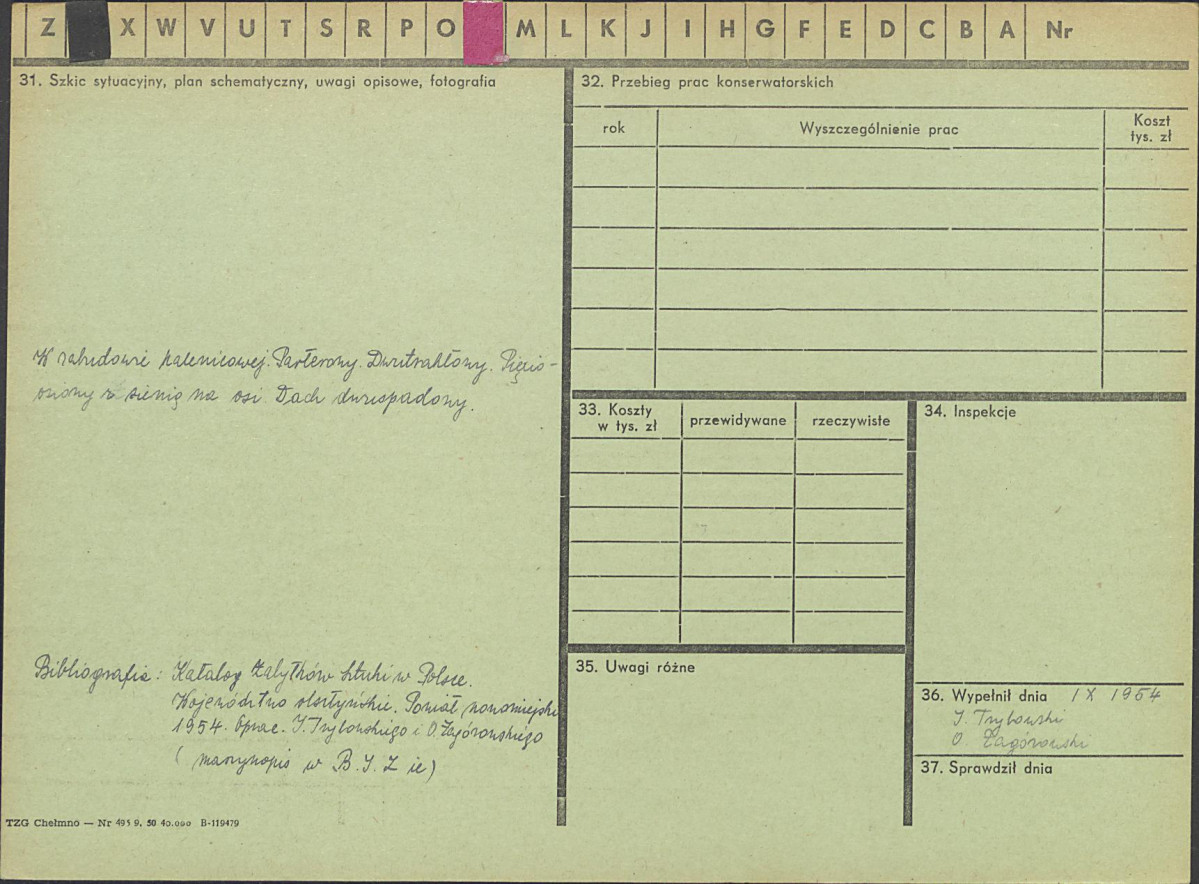 Z X W V U T S R P O M L K J I H G F E D C B A Nr
31. Szkic sytuacyjny, plan schematyczny, uwagi opisowe, fotografia
W zabudowie kalenicowej. Parterowy. Dwutraktowy. Pięcio-
osiowy z sienią na osi Dach dwuspadowy.
Bibliografia: Katalog Zabytków Sztuki w Polsce.
Województwo olsztyńskie. Powiat nowomiejski
1954. Oprac. J. Trybowskiego i O. Zagórowskiego
(maszynopis w B. I. Z ie)
TZG Chełmno — Nr 495 9. 50 40.000 B-119479
32. Przebieg prac konserwatorskich
rok Wyszczególnienie prac Koszt
tys. zł
33. Koszty
w tys. zł przewidywane rzeczywiste
34. Inspekcje
35. Uwagi różne
36. Wypełnił dnia IX 1954
J. Trybowski
O. Zagórowski
37. Sprawdził dnia